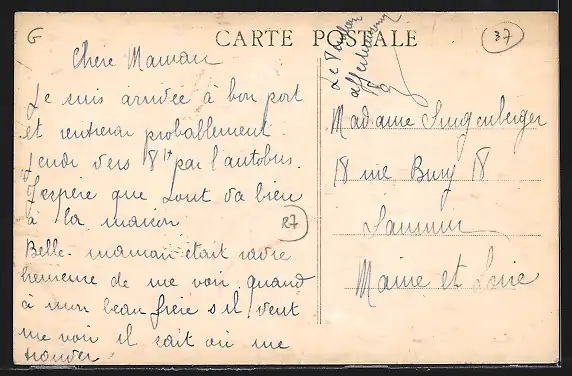 G
CARTE POSTALE
37
Chère Maman
Je suis arrivée à bon port
et rentrerai probablement
lundi vers 18h par l'autobus.
J'espère que tout va bien
à la maison
R7
Belle-maman était ravie
heureuse de me voir quand
à mon beau frère s'il veut
me voir il sait où me
trouver
affectueusement
Madame Singenberger
18 rue Bury 18
Saumur
Maine et Loire